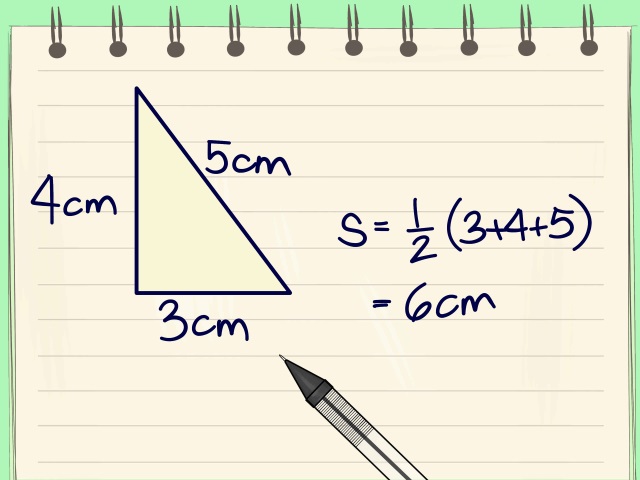 5cm
4cm
S = 1/2 (3+4+5)
= 6cm
3cm